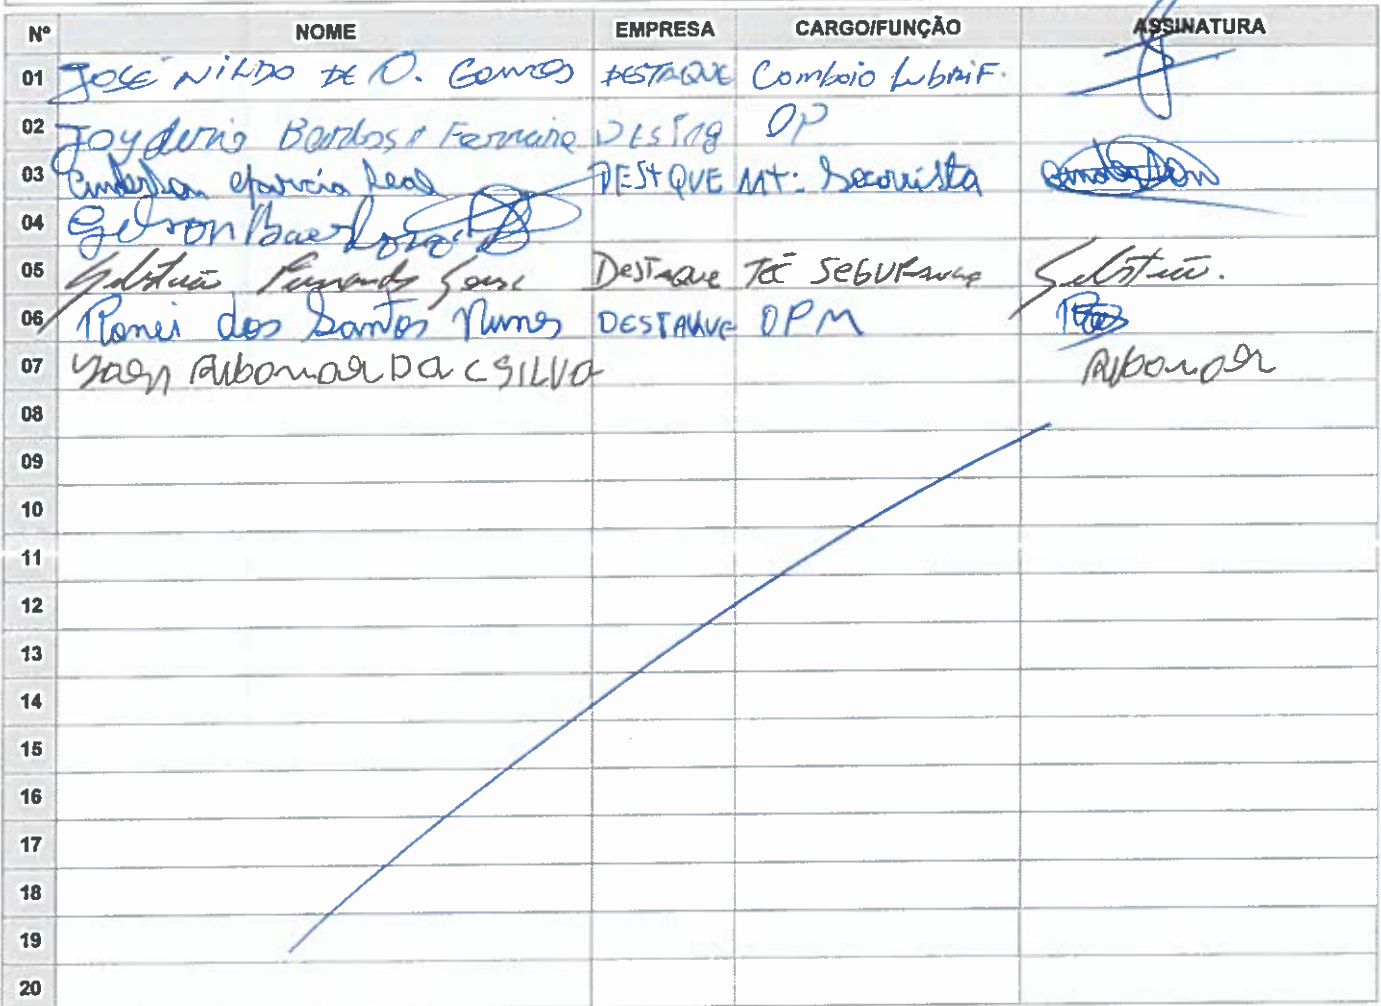 Nº NOME EMPRESA CARGO/FUNÇÃO ASSINATURA
01 JOSÉ NILDO DE O. Gomes DESTAQUE Comboio Lubrif.
02 Barbosa Ferreira OP
03 Anderson Real DESTQUE MT: Socorrista Anderson
04 Gelson
05 Fernando DesTaque Téc SEGURANÇA
06 Ronei dos Santos Nunes DESTAUVE OPM
07 Ribomar Da C SILVA Ribomar
08
09
10
11
12
13
14
15
16
17
18
19
20